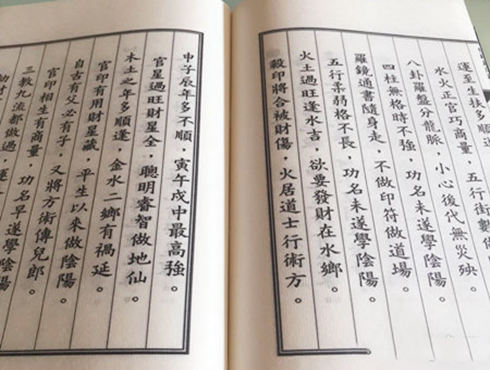 運至生扶多順
水火正官巧商量，五行術數
八卦羅盤分龍脈，小心後代無災殃。
四柱無格時不強，功名未遂學陰陽。
羅鏡通書隨身走，不做印符做道場。
五行柔弱格不長，功名未遂學陰陽。
火土過旺逢水吉，欲要發財在水鄉。
殺印將合被財傷，火居道士行術方。
申子辰年多不順，寅午戌中最高強。
官星過旺財星全，聰明睿智做地仙。
木土之年多順逢，金水二鄉有禍延。
官印有用財星藏，平生以來做陰陽。
自古有父必有子，又將方術傳兒郎。
官印相生有商量，功名早遂學陰陽。
三教九流都做過，運